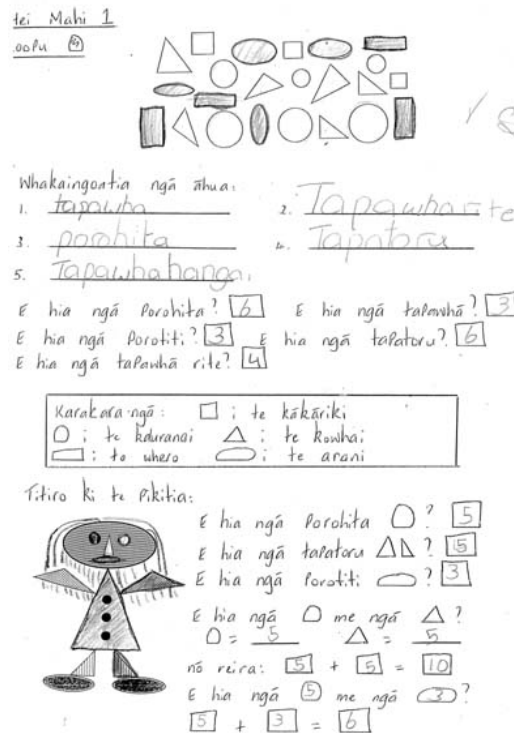 tei Mahi 1
oopu
Whakaingoatia ngā āhua:
1. tapawha 2. Tapawha rite
3. porohita 4. Tapatoru
5. Tapawhahanga
E hia ngā Porohita? 6 E hia ngā tapawhā? 3
E hia ngā Porotiti? 3 E hia ngā tapatoru? 6
E hia ngā tapawhā rite? 4
Karakara ngā: : te kākāriki
: te kauranai : te kowhai
: te whero : te arani
Titiro ki te Pikitia:
E hia ngā Porohita ? 5
E hia ngā tapatoru ? 5
E hia ngā Porotiti ? 3
E hia ngā me ngā ?
= 5 = 5
nō reira: 5 + 5 = 10
E hia ngā 5 me ngā 3?
5 + 3 = 6